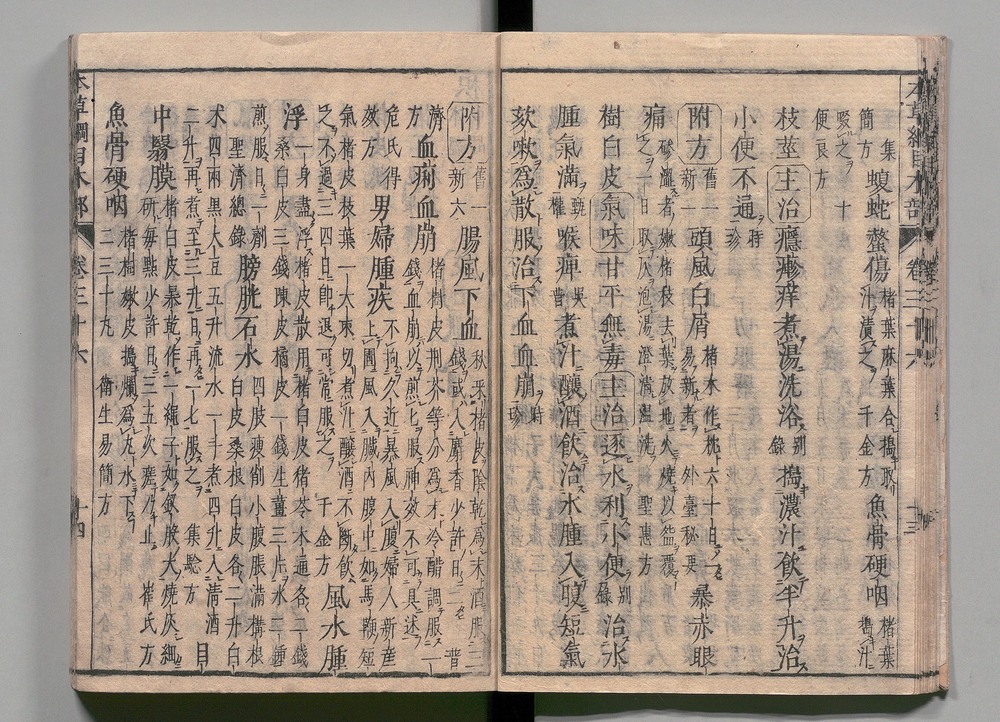 集
簡方 蝮蛇螫傷 楮葉麻葉合搗取汁漬之 千金方 魚骨硬咽 楮葉搗汁
啜之 十
便良方
枝莖 主治 癮疹痒煮湯洗浴 别錄 搗濃汁飲半升治
小便不通 時珍
附方 舊一新一 頭風白屑 楮木作枕六十日一易新者 外臺秘要 暴赤眼
痛 磣澀者嫩楮枝去葉放地火燒以盌覆一日取灰泡湯澄清溫洗 聖惠方
樹白皮 氣味 甘平無毒 主治 逐水利小便 别錄 治水
腫氣滿 甄權 喉痺 吳普 煮汁釀酒飲治水腫入腹短氣
欬嗽為散服治下血血崩 時珍
附方 舊一新六 腸風下血 秋采楮皮陰乾為末酒服三錢或入麝香少許日二 普
濟方 血痢血崩 楮樹皮荊芥等分為末冷醋調服一錢血崩以煎匕服神效不可具述
危氏得效方 男婦腫疾 不拘久近暴風入腹婦人新產上圊風入臟內腹中如馬鞭短
氣楮皮枝葉一大束切煮汁釀酒不斷飲
之不過三四日即退可常服之 千金方 風水腫
浮 一身盡浮楮皮散用楮白皮猪苓木通各二錢桑白皮三錢陳皮橘皮一錢生薑三片水二鍾
煎服日一劑
聖濟總錄 膀胱石水 四肢瘦削小腹脹滿構根白皮桑根白皮各二升白
术四兩黑大豆五升流水一斗煮四升入清酒
二升再煮至三升日再一匕服之 集驗方 目
中翳膜 楮白皮暴乾作一繩子如釵股大燒灰細研每點少許日三五次瘥乃止 崔氏方
魚骨硬咽 楮樹嫩皮搗爛為丸水下二三十丸 衛生易簡方
本草綱目木部 卷三十六 十四